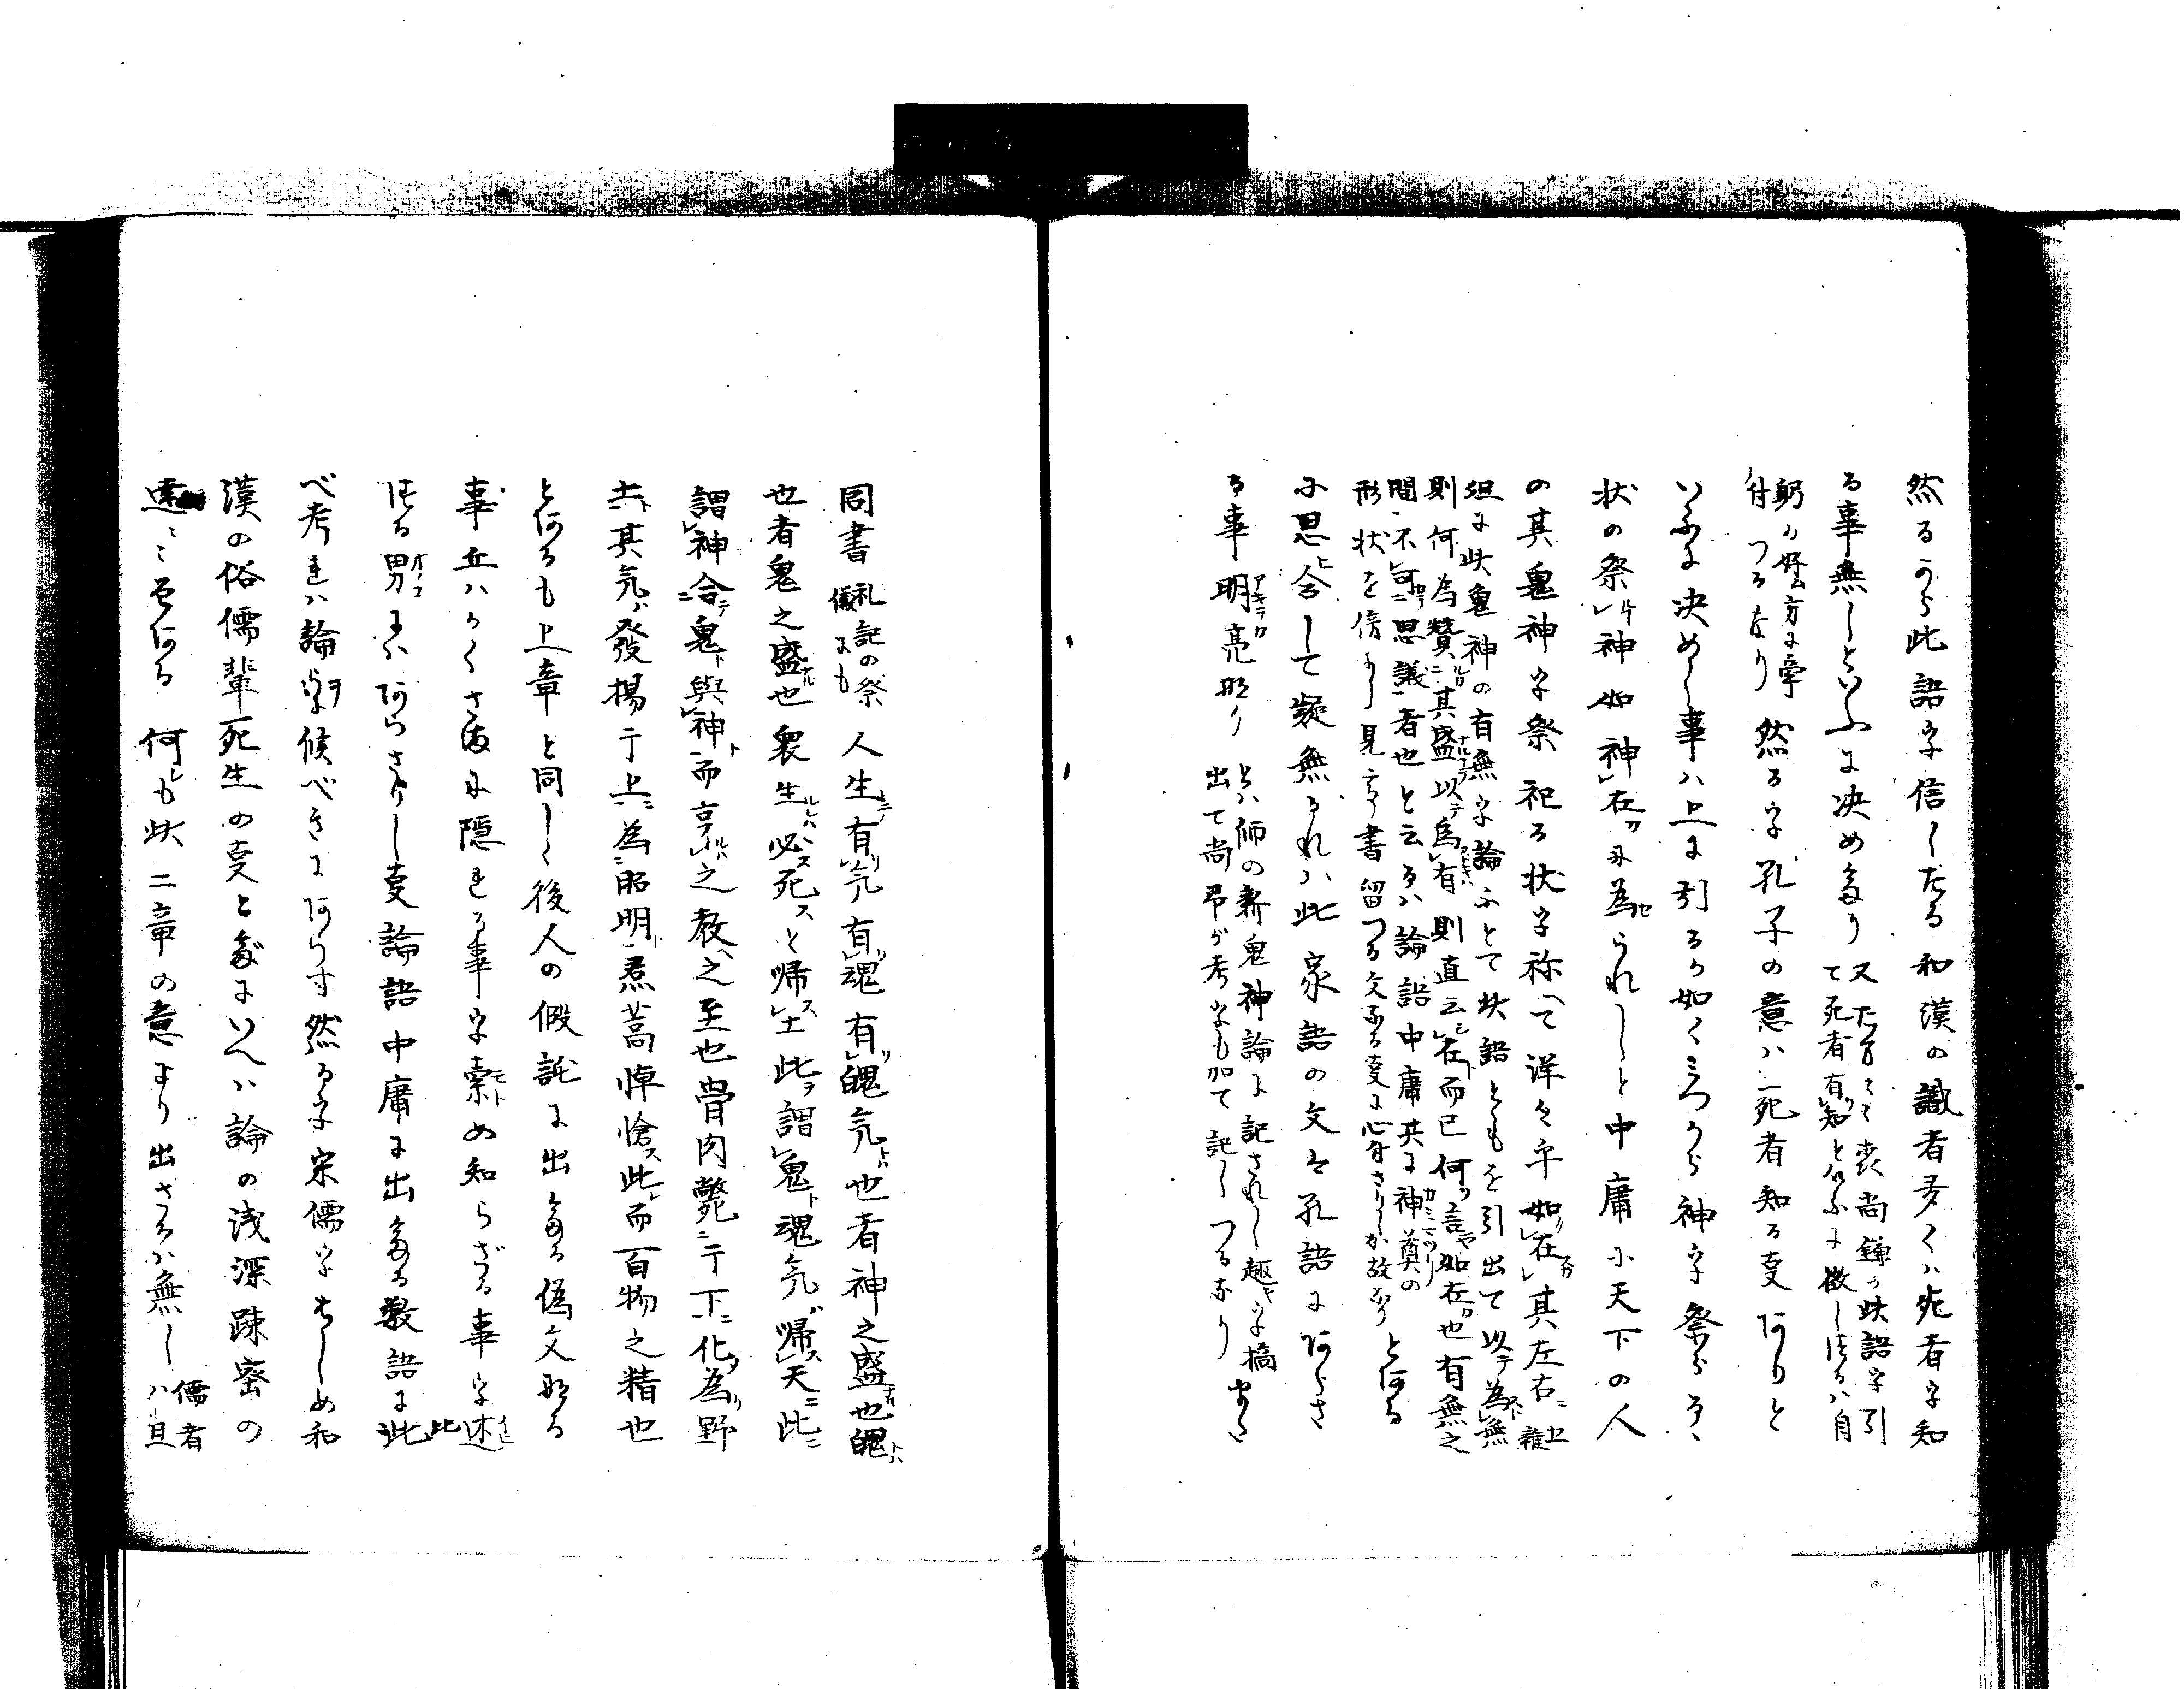 然るから此語字信したる和漢の識者多くハ死者字知
る事無しといふに决め多り 又たま〻〻喪尚鐘か此語字引
て死者有知と云ふに徴しつるハ自
躬の好ム方に牽
付つるなり 然る字孔子の意ハ死者知る叓阿りと
いふに决めし事ハ上に引るか如くみつから神字祭らるゝ
状の祭神如神在に為られしと中庸に天下の人
の其鬼神字祭祀る状字称へて洋々乎如在其左右上
雜
但に此鬼神の有無字論ふとて此語ともを引出て以為無
則何為贊其盛以為有則直云在而已何言如在也有無之
間不可思議者也と云るハ論語中庸共に神奠の
形状を傍より見て書留つる文なる叓に心付さりしか故なり と阿る
に思合して疑無かれハ此家語の文は孔語に阿らさ
る事明亮那り こハ師の新鬼神論に記されし趣字摘
出て尚吊が考字も加て記しつるなり また
同書礼記の祭
儀にも 人生有氕有魂有魄氕也者神之盛也魄
也者鬼之盛也衆生必死と帰土此謂鬼魂氕帰天此
謂神合鬼與神而享之教之至也骨肉斃于下化為野
土其氕發揚于上為昭明焄蒿悽愴此而百物之精也
と阿るも上章と同しく後人の假託に出多る偽文那る
事丘ハかくさ満に隠れる事字索め知らざる事字述
つる男にハ阿らさりし叓論語中庸に出多る数語に此此
べ考れハ論字候べきに阿らす然る字宋儒字者しめ和
漢の俗儒輩死生の叓と多にいへハ論の浅深踈密の
違ミこそ阿れ 何も此二章の意より出さるハ無し 儒者
ハ且